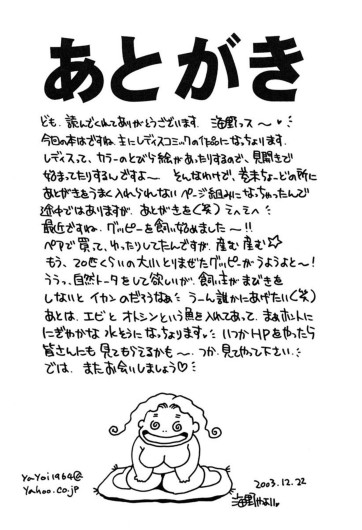 あとがき
ども、読んでくれてありがとうございます。海野っス〜♥
今回の本はですね、主にレディスコミックの作品になっちょります。
レディスって、カラーのとびら絵があったりするので、見開きで
始まってたりするんですよ〜 そんなわけで、巻末ちょーどの所に
あとがきをうまく入れられないページ組みになっちゃったんで
途中ではありますが、あとがきを(笑) ミヘミヘ
最近ですね、グッピーを飼い始めました〜!!
ペアで買って、ゆったりしてたんですが、産む産む☆
もう、20匹くらいの大小とりまぜたグッピーがうようよと〜!
ううっ、自然トータをして欲しいが、飼い主がまびきを
しないとイカンのだろうなぁ うーん誰かにあげたい(笑)
あとは、エビとオトシンという魚を入れてあって、まぁホントに
にぎやかな水そうになっちょります。いつかHPをやったら
皆さんにも見てもらえるかも〜、つか、見てやって下さい。
では、またお会いしましょう♡
YaYoi1964@
Yahoo.co.jp
2003.12.22
海野やよい